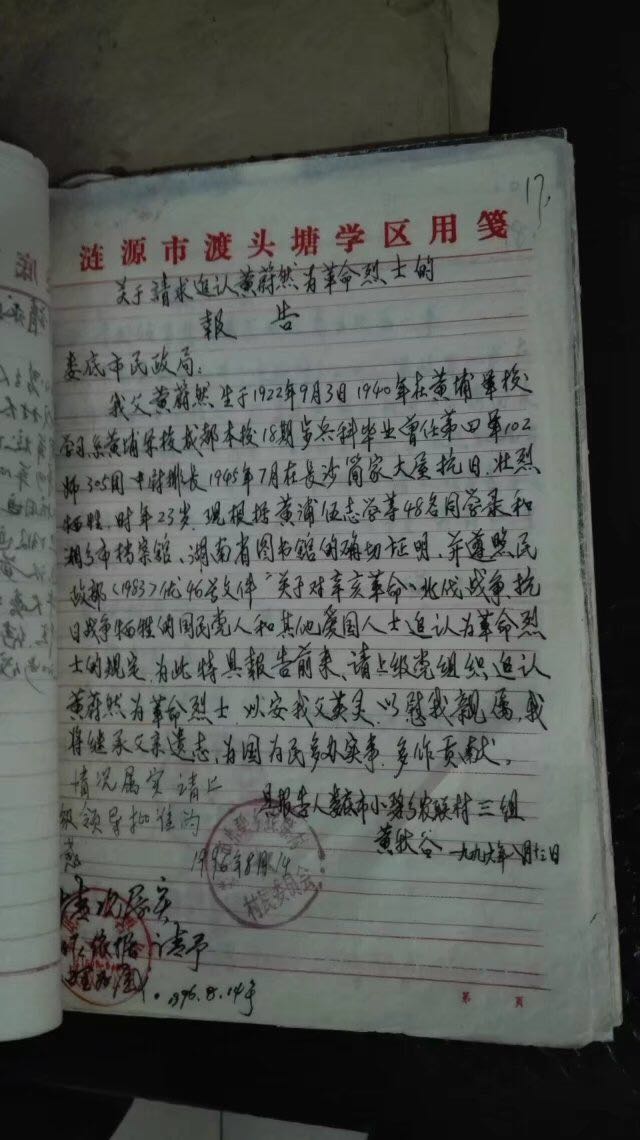 17.
涟源市渡头塘学区用笺
关于请求追认黄蔚然为革命烈士的
報告
娄底市民政局：
我父黄蔚然生于1922年9月3日1940年在黄埔军校
学习系黄埔军校成都本校18期步兵科毕业曾任第四军102
师305团中尉排长1945年7月在长沙简家大屋抗日，壮烈
牺牲，时年23岁，现根据黄浦伍志学等48名同学录和
湘乡市档案馆、湖南省图书馆的确切证明，并遵照民
政部（1983）优46号文件“关于对辛亥革命、北伐战争抗
日战争牺牲的国民党人和其他爱国人士追认为革命烈
士的规定，为此特具報告前来，请上级党组织追认
黄蔚然为革命烈士，以安我父英灵，以慰我親属，我
将继承父亲遗志，为国为民多办实事，多作贡献。
情况属实请上
级领导批准为
具报告人娄底市小碧乡农联村三组
1996年8月14
黄秋谷 一九九六年八月十三日
村民委员会
情况属实
请予
1996.8.14号
第 页